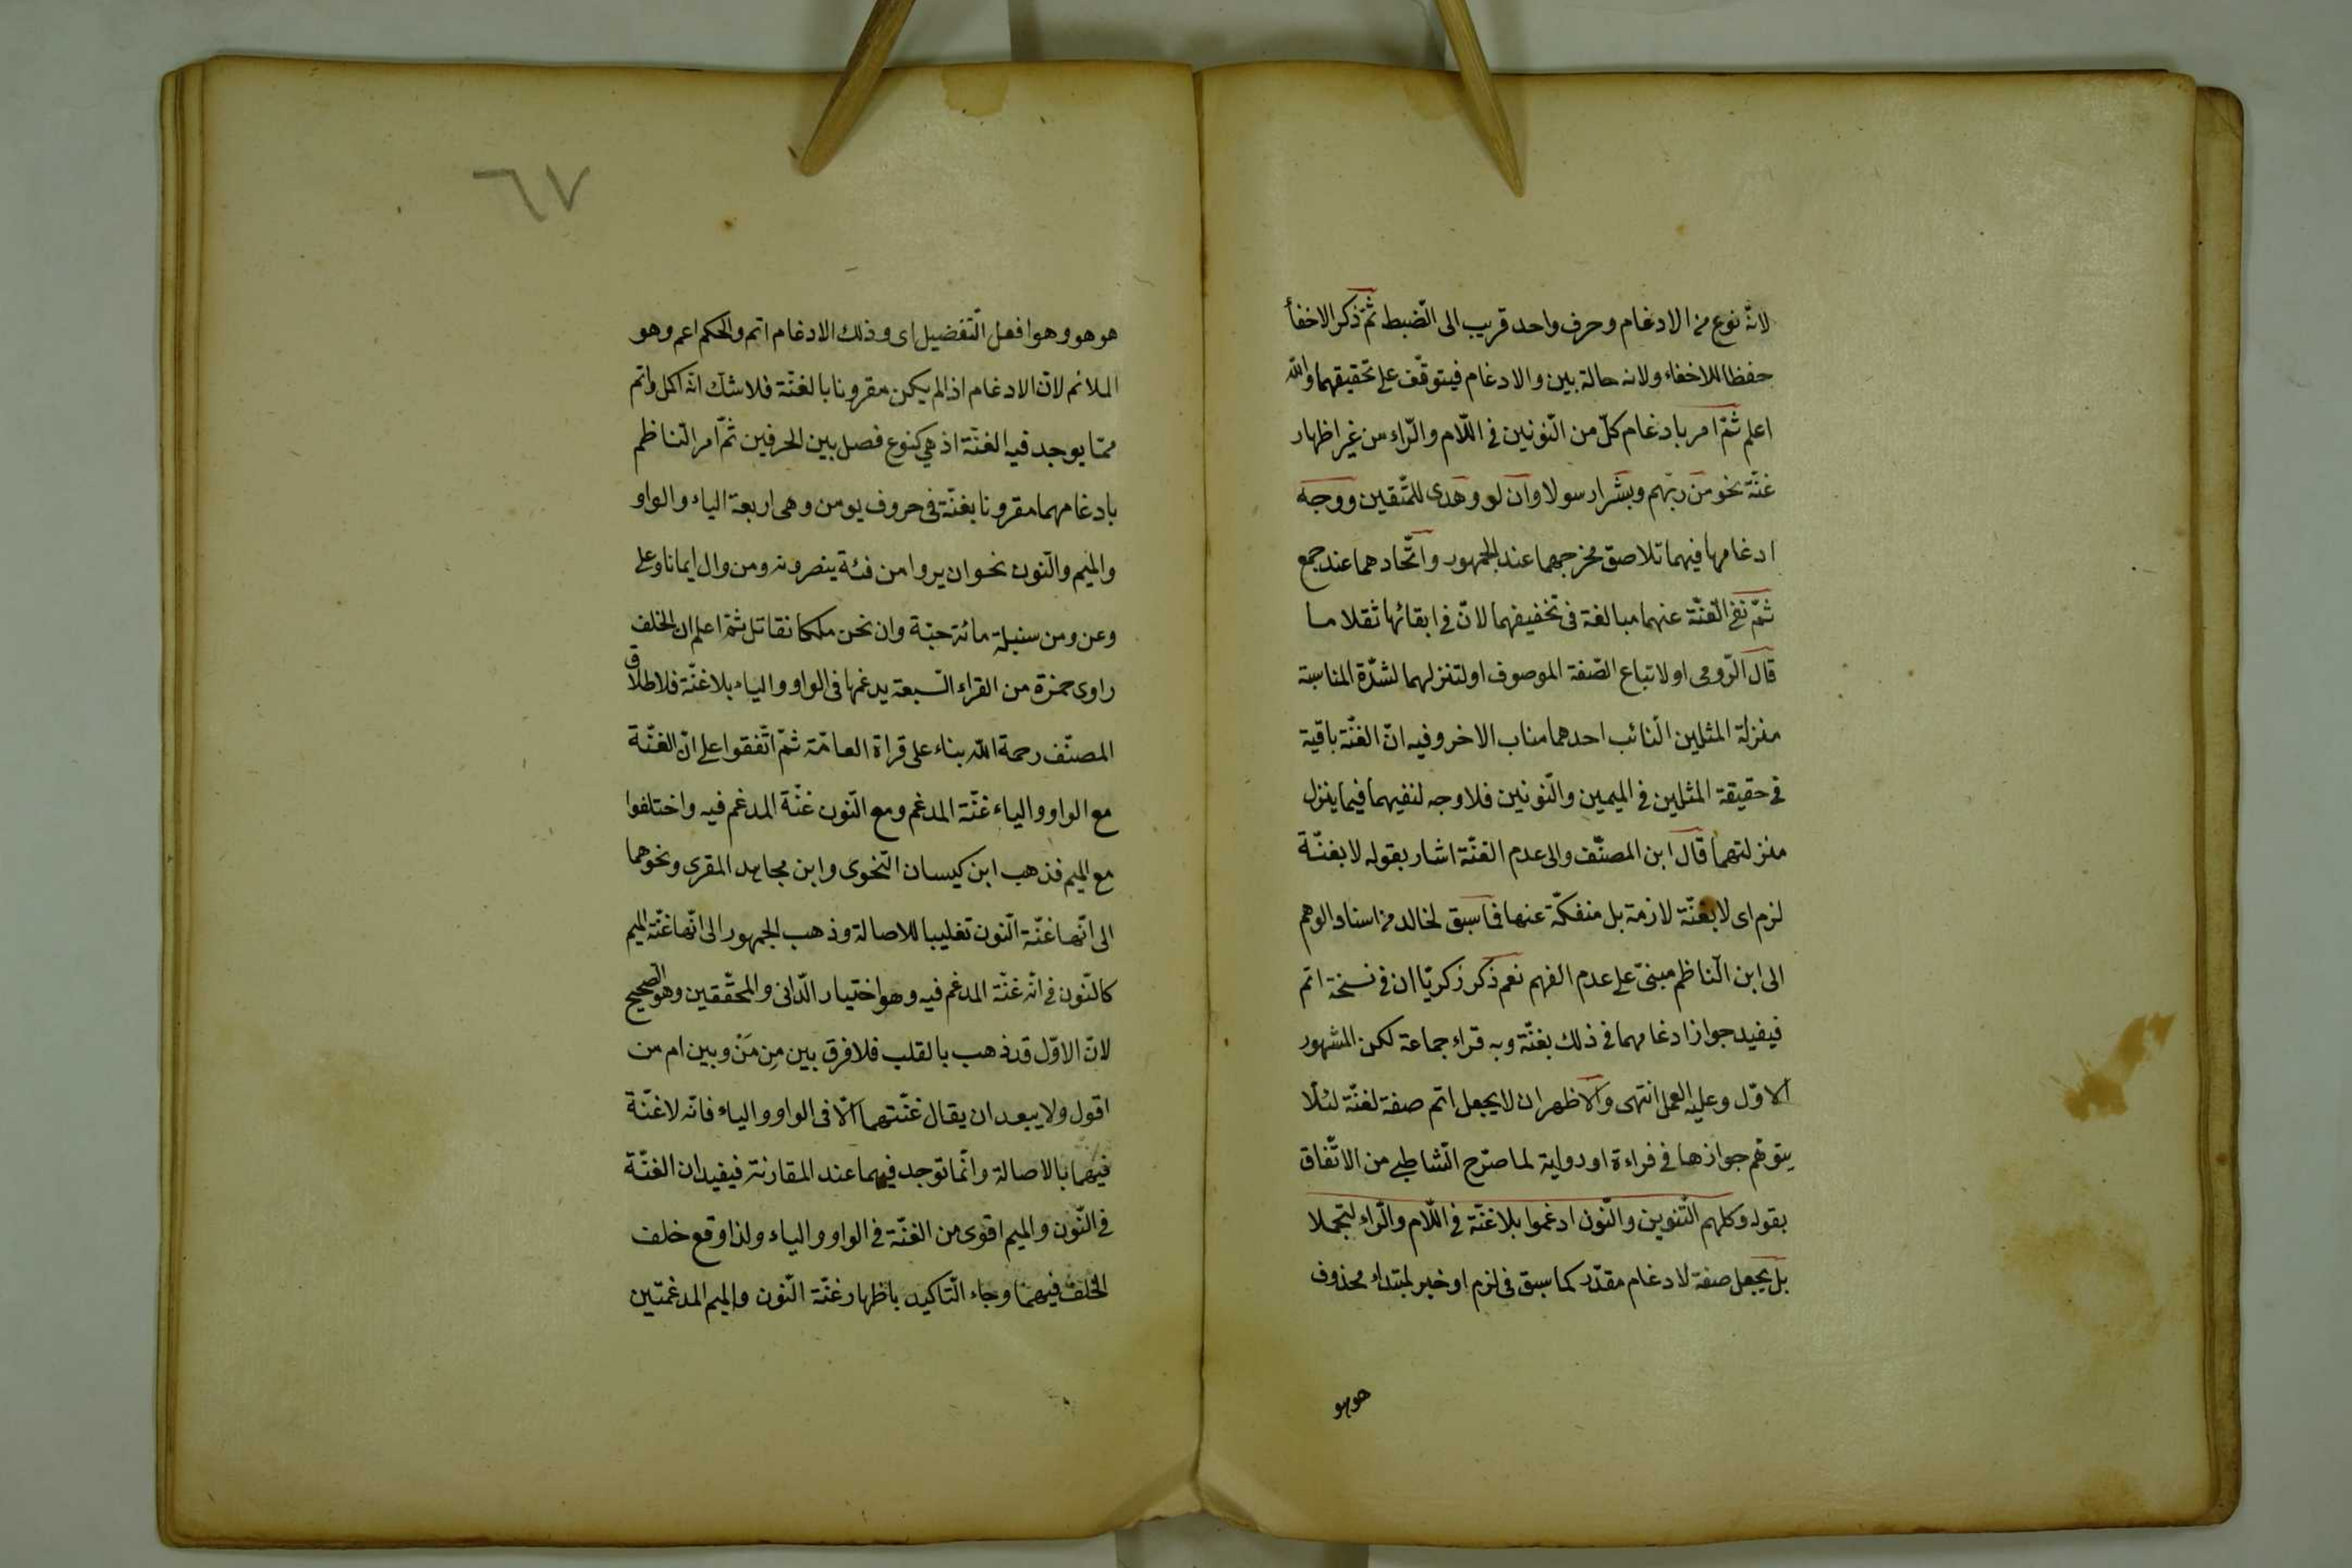 لانّه نوع من الادغام وحرف واحد قريب الى الضّبط ثمّ ذكر الاخفأ
حفظا للاخفاء ولانه حالة بين والادغام فيتوقّف على تحقيقهما والله
اعلم ثمّ امر بادغام كلّ من النّونين فى اللّام والرّاء من غير اظهار
غنّة نحو من ربّهم وبشرا رسولا وان لو وهدى للمتّقين ووجه
ادغامها فيهما تلاصق مخرجهما عند الجمهور واتّحادهما عند جمع
ثمّ نفى الغنّة عنهما مبالغة فى تخفيفهما لانّ فى ابقائها ثقلا ما
قال الرّومى او لاتباع الصّفة الموصوف او لتنزلهما لشدّة المناسبة
منزلة المثلين النّائب احدهما مناب الاخر وفيه انّ الغنّة باقية
فى حقيقة المثلين فى الميمين والنّونين فلا وجه لنفيهما فيما ينزل
منزلتهما قال ابن المصنّف والى عدم الغنّة اشار بقوله لا بغنّة
لزم اى لا بغنّة لازمة بل منفكّة عنها فما سبق لخالد من اسناد الوهم
الى ابن النّاظم مبنىّ على عدم الفهم نعم ذكر زكريّا ان فى نسخة اتم
فيفيد جواز ادغامهما فى ذلك بغنّة وبه قراء جماعة لكن المشهور
الاوّل وعليه العمل انتهى والاظهر ان لا يجعل اتم صفة لغنّة لئلّا
يتوّهم جوازها فى قراءة او رواية لما صرّح الشّاطبى من الاتّفاق
بقوله وكلهم التّنوين والنّون ادغموا بلا غنّة فى اللّام والرّاء لتجملا
بل يجعل صفة لادغام مقدّر كما سبق فى لزم او خبر لمبتداء محذوف
هو هو
٦٧
هو هو وهو افعل التّفضيل اى وذلك الادغام اتم والحكم اعم وهو
الملائم لانّ الادغام اذا لم يكن مقرونا بالغنّة فلا شك انّه اكمل واتم
ممّا يوجد فيه الغنّة اذ هى كنوع فصل بين الحرفين ثمّ امر النّاظم
بادغامهما مقرونا بغنّة فى حروف يومن وهى اربعة الياء والواو
والميم والنّون نحو ان يروا من فئة ينصرونه ومن وال ايمانا وعلى
وعن ومن سنبلة مائة حبّة وان نحن ملكا نقاتل ثمّ اعلم ان الخلف
راوى حمزة من القراء السّبعة يدغمها فى الواو والياء بلا غنّة فلاطلاق
المصنّف رحمة الله بناء على قراة العامّة ثمّ اتّفقوا على انّ الغنّة
مع الواو والياء غنّة المدغم ومع النّون غنّة المدغم فيه واختلفوا
مع الميم فذهب ابن كيسان النّحوى وابن مجاهد المقرى ونحوهما
الى انّها غنّة النّون تغليبا للاصالة وذهب الجمهور الى انّها غنّة الميم
كالنّون فى انّه غنّة المدغم فيه وهو اختيار الدّانى والمحقّقين وهو الصّحيح
لانّ الاوّل قد ذهب بالقلب فلا فرق بين مِن مَنْ وبين ام من
اقول ولا يبعد ان يقال غنّتهما الّا فى الواو والياء فانّه لا غنّة
فيهما بالاصالة وانّما توجد فيهما عند المقارنة فيفيد ان الغنّة
فى النّون والميم اقوى من الغنّة فى الواو والياء ولذا وقع خلف
الخلف فيهما وجاء التّاكيد باظهار غنّة النّون والميم المدغمتين